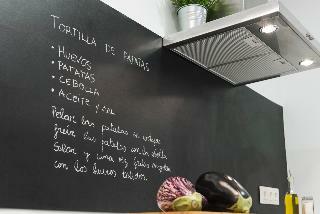 TORTILLA DE PATATAS
• HUEVOS
• PATATAS
• CEBOLLA
• ACEITE Y SAL
Pelar las patatas
freír las patatas con la cebolla
Salar y una vez fritas
con los huevos batidos.